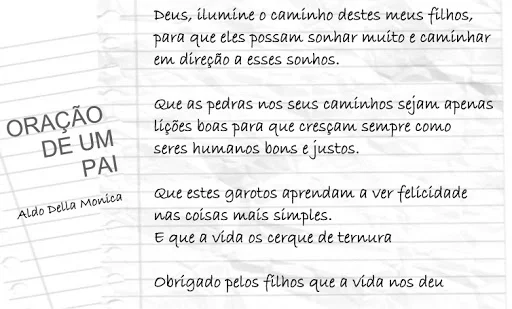 ORAÇÃO
DE UM
PAI
Aldo Della Monica
Deus, ilumine o caminho destes meus filhos,
para que eles possam sonhar muito e caminhar
em direção a esses sonhos.
Que as pedras nos seus caminhos sejam apenas
lições boas para que cresçam sempre como
seres humanos bons e justos.
Que estes garotos aprendam a ver felicidade
nas coisas mais simples.
E que a vida os cerque de ternura
Obrigado pelos filhos que a vida nos deu